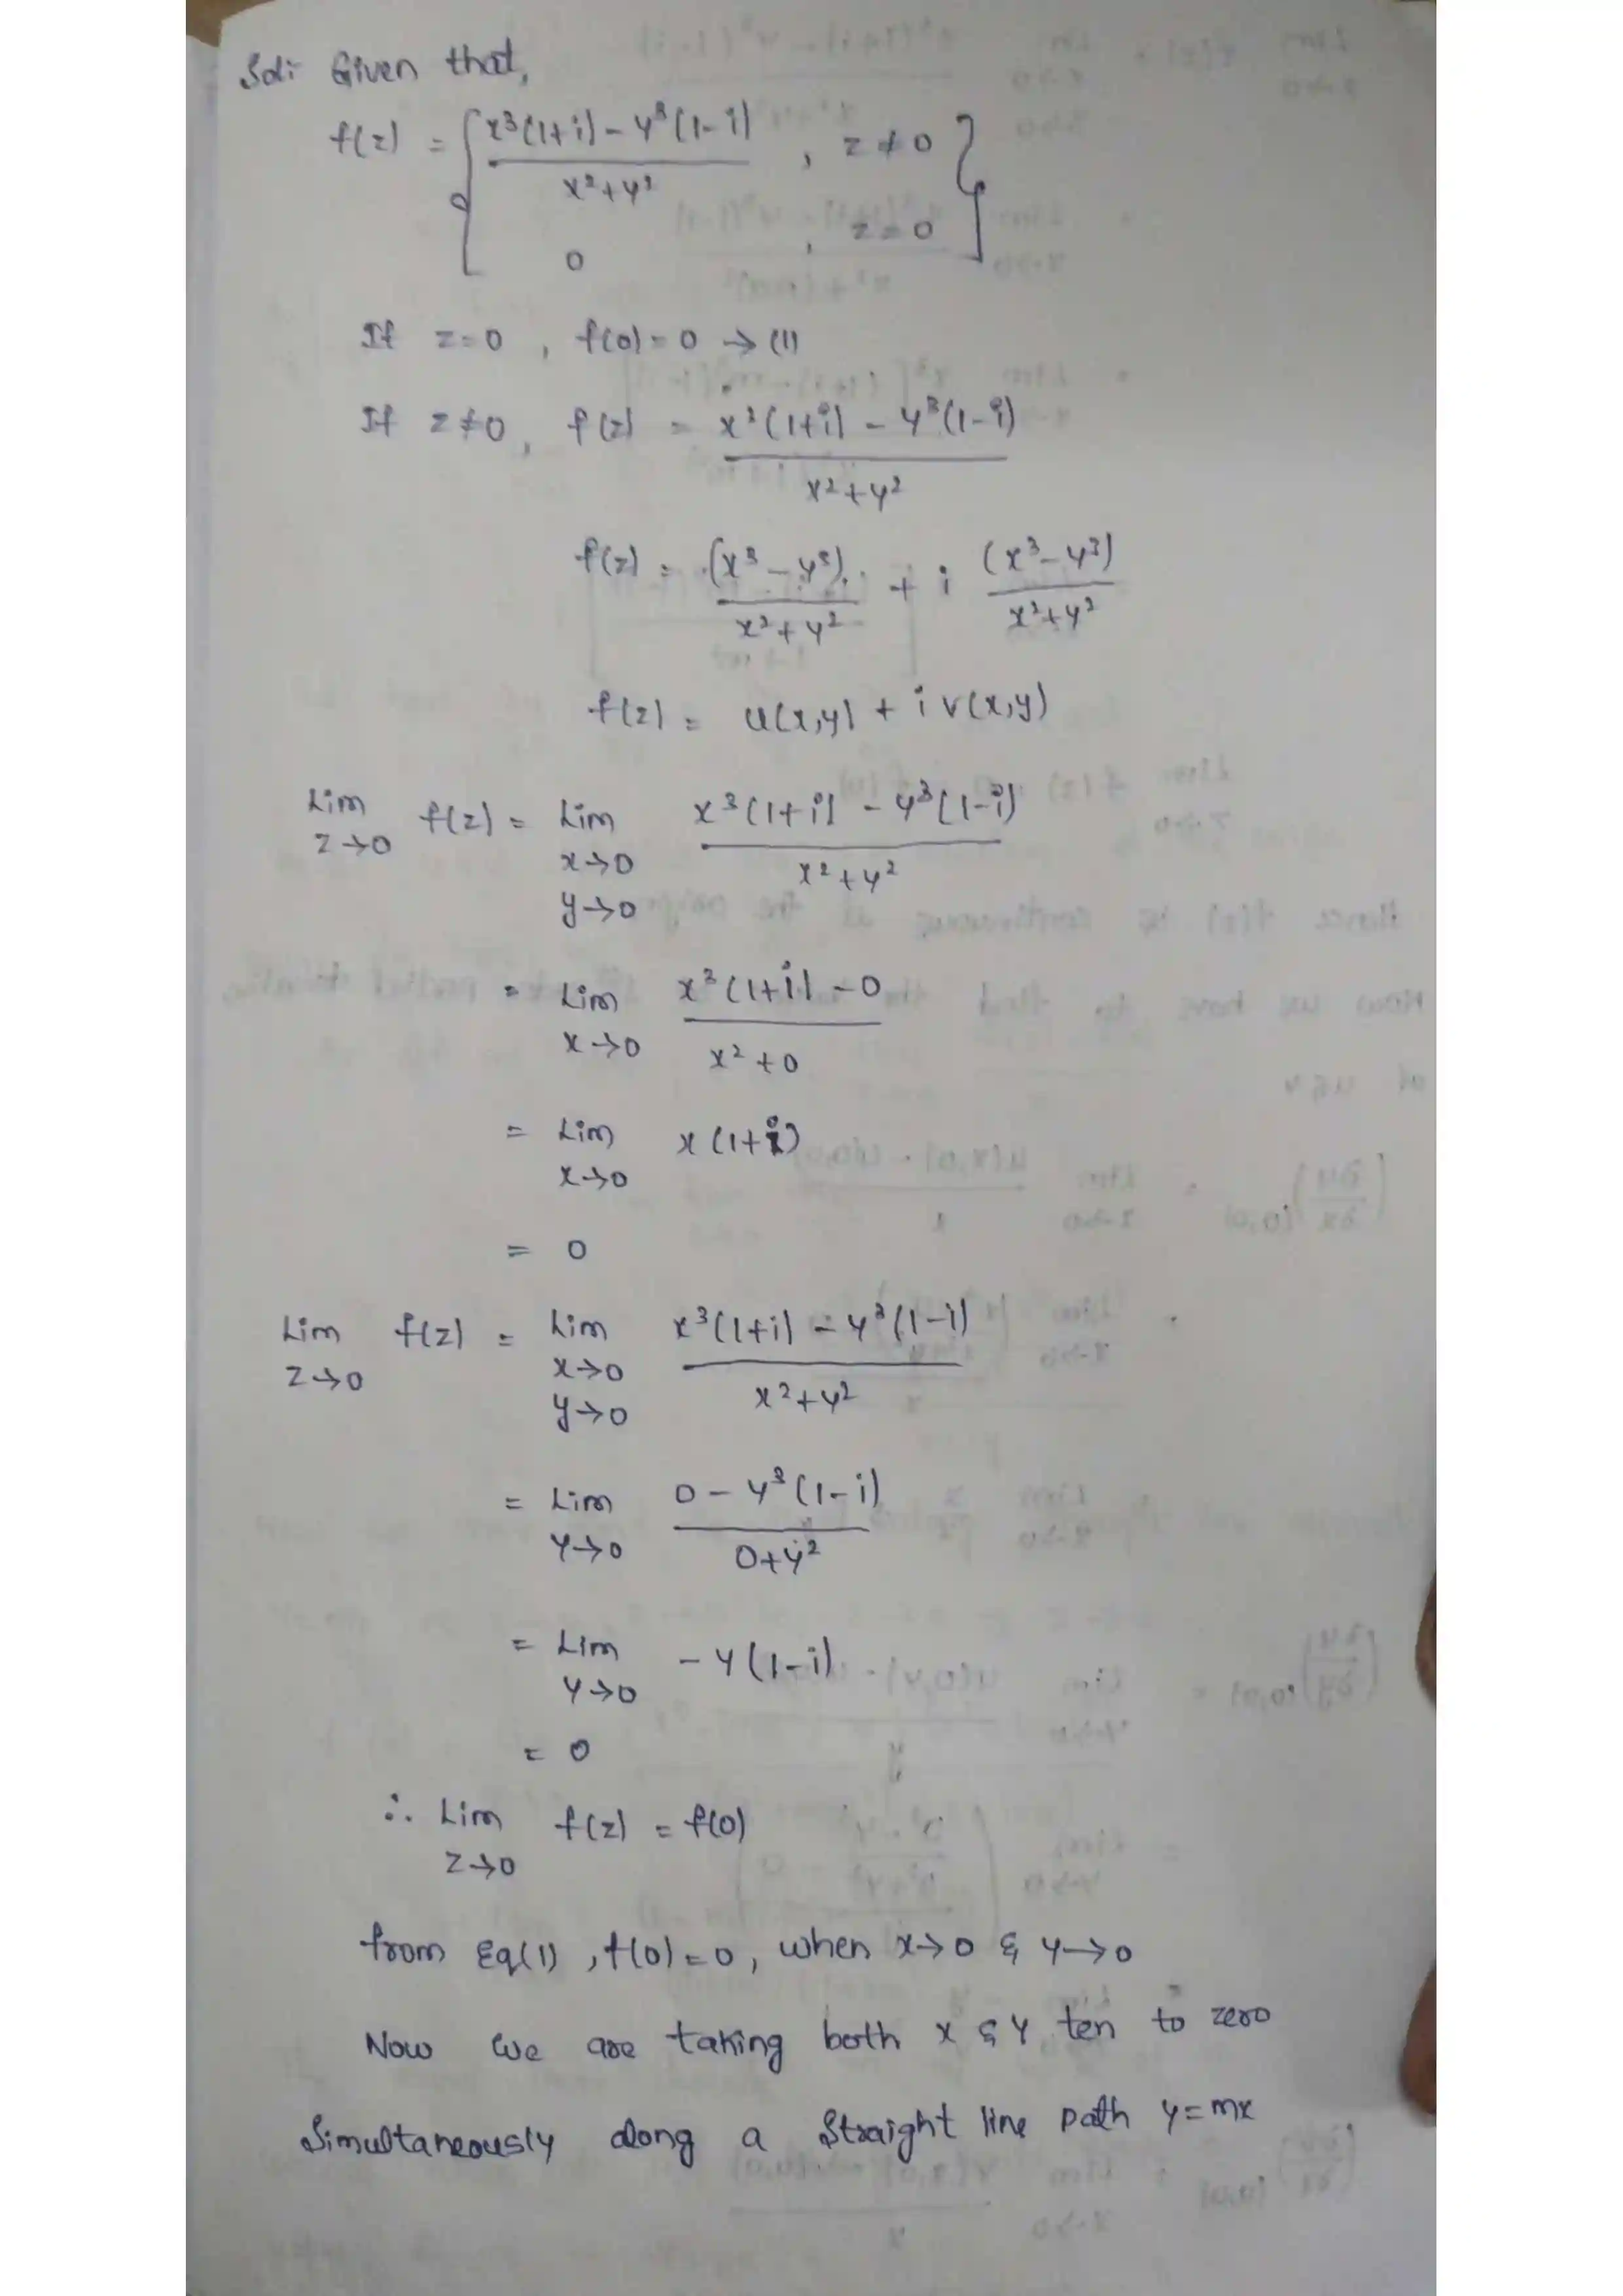 Sol:- Given that,
f(z) = { x³(1+i) - y³(1-i) / x²+y² , z ≠ 0
0 , z = 0 }
If z = 0 , f(0) = 0 → (1)
If z ≠ 0 , f(z) = x³(1+i) - y³(1-i) / x²+y²
f(z) = (x³ - y³) / x²+y² + i (x³ - y³) / x²+y²
f(z) = u(x,y) + i v(x,y)
Lim z→0 f(z) = Lim x→0 y→0 x³(1+i) - y³(1-i) / x²+y²
= Lim x→0 x³(1+i) - 0 / x²+0
= Lim x→0 x(1+i)
= 0
Lim z→0 f(z) = Lim x→0 y→0 x³(1+i) - y³(1-i) / x²+y²
= Lim y→0 0 - y³(1-i) / 0+y²
= Lim y→0 -y(1-i)
= 0
∴ Lim z→0 f(z) = f(0)
from Eq(1) , f(0) = 0 , when x→0 & y→0
Now we are taking both x & y ten to zero
Simultaneously along a Straight line path y=mx